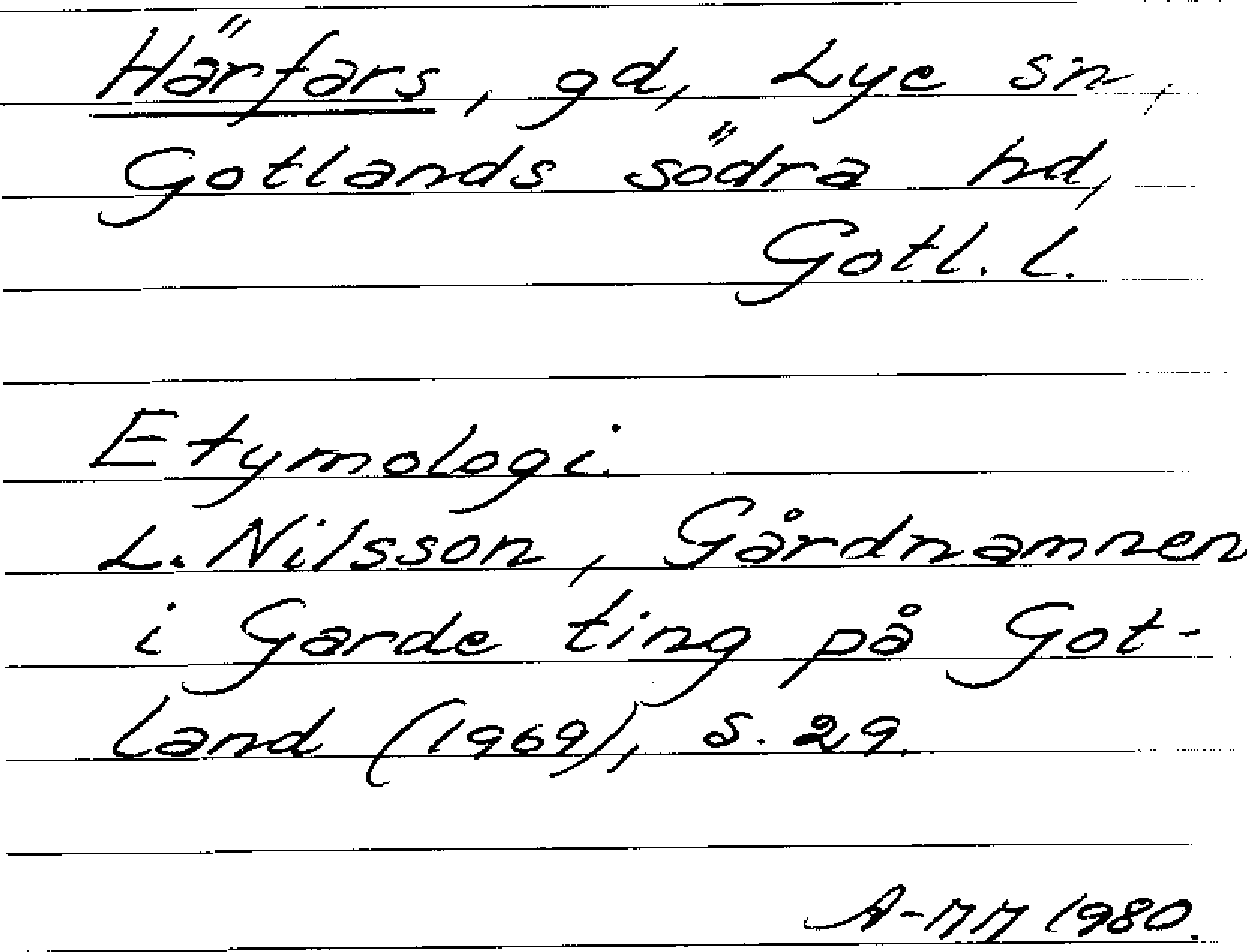 Härfars, gd, Lye sn,
Gotlands södra hd,
Gotl. l.
Etymologi.
L. Nilsson, Gårdnamnen
i Garde ting på Got-
land (1969), s. 29.
A-MM 1980.